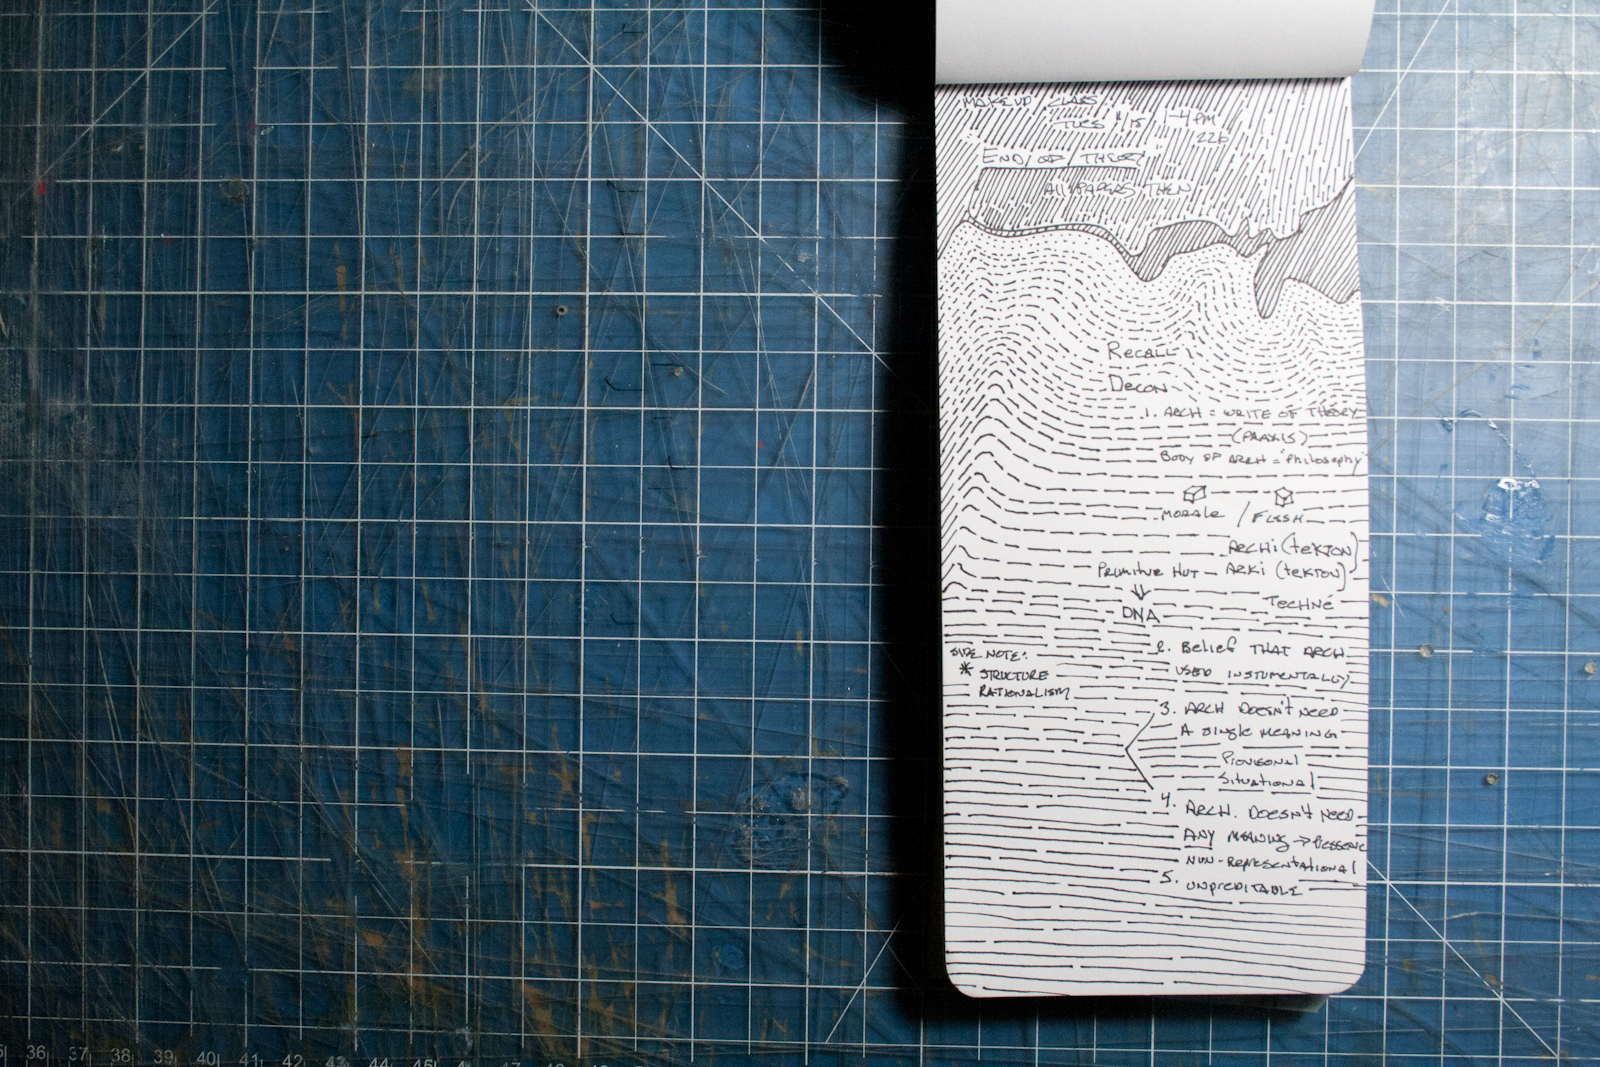 MAKEUP CLASS
TUES 1-4 PM
220
END/OF/THEORY
ALL PAPERS THEN
RECALL
DECON
1. ARCH = WRITE OF THEORY
(PRAXIS)
BODY OF ARCH = "Philosophy"
MORALE / FLESH
ARCHI (TEKTON)
PRIMITIVE HUT - ARKI (TEKTON)
TECHNÉ
DNA
SIDE NOTE:
* STRUCTURE
RATIONALISM
2. Belief THAT ARCH
USED INSTUMENTALLY
3. ARCH DOESN'T NEED
A SINGLE MEANING
Situational
4. ARCH. DOESN'T NEED
ANY MEANING →
NON-REPRESENTATIONAL
5. UNPREDITABLE
36 37 38 39 40 41 42 43 44 45 47